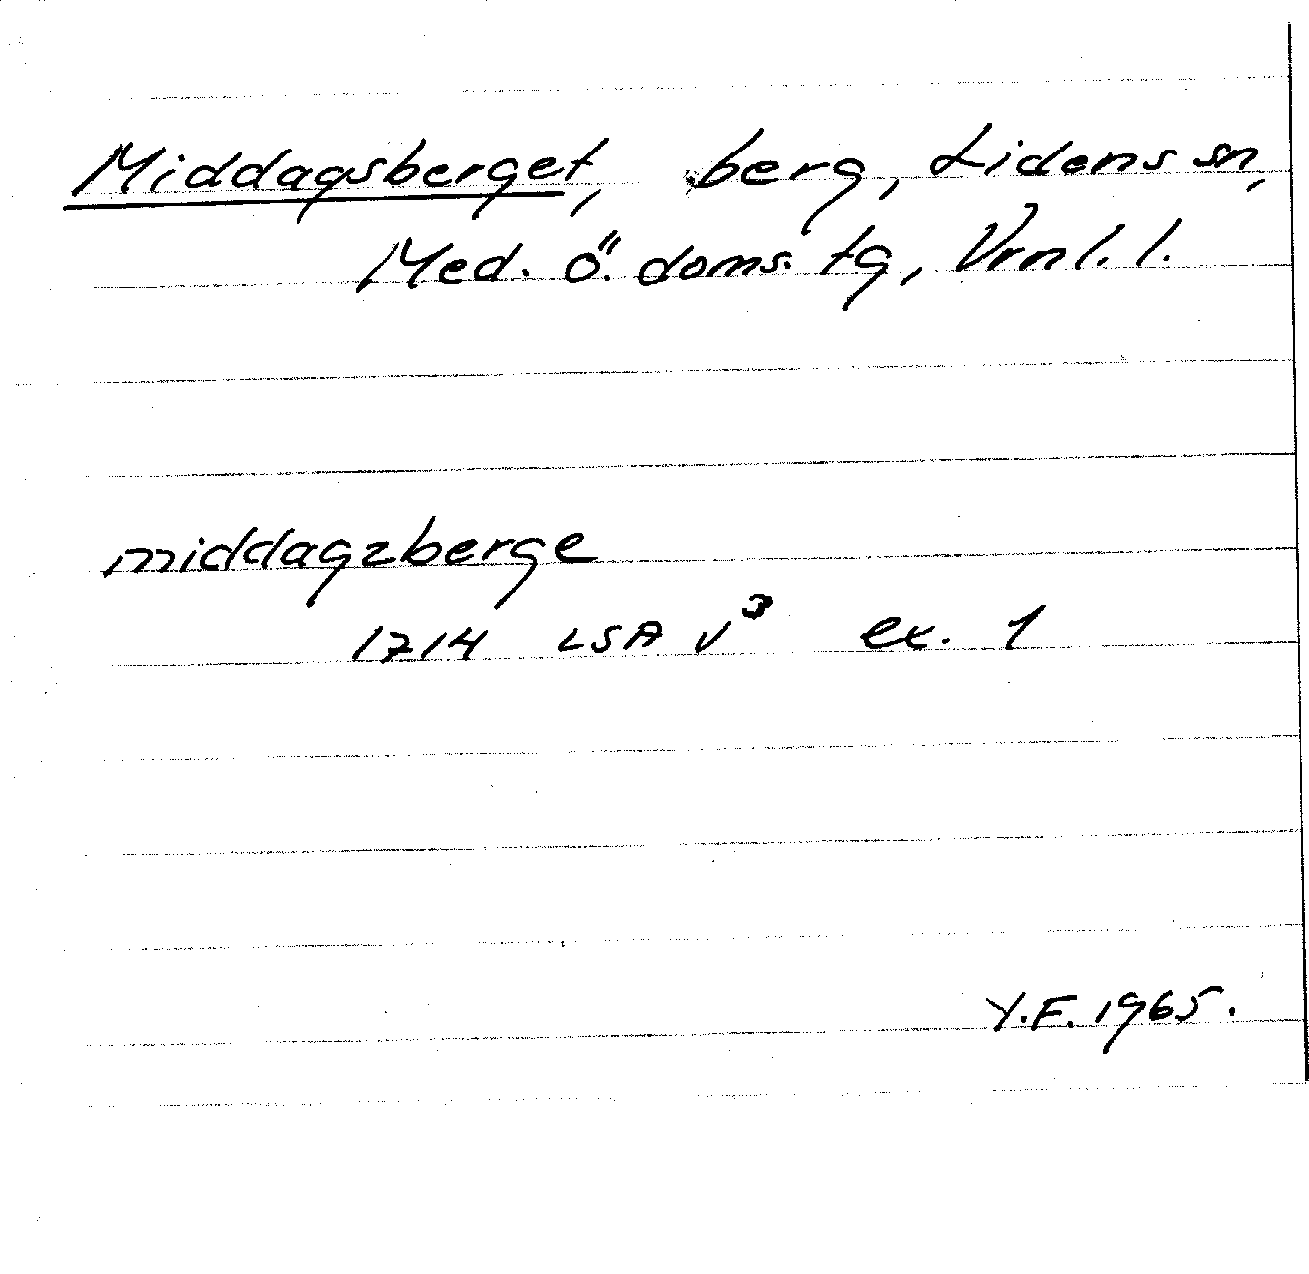 Middagsberget, berg, Lidens sn,
Med. ö. doms. tg, Vrnl. l.
middagzberge
1714 LSA V³ ex. 1
Y.F. 1965.